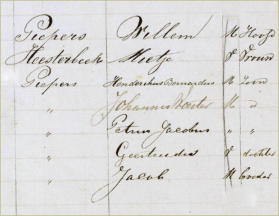 Piepers Willem M Hoofd
Heesterbeek Mietje V Vrouw
Piepers Hendericus Bernardus M Zoon
" Johannes M d
" Petrus Jacobus " "
" Geertrudes V dochter
" Jacob M broeder